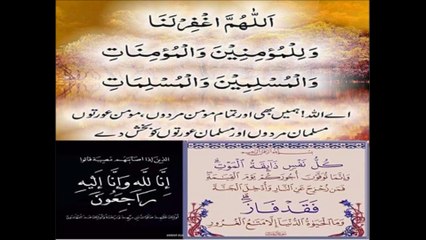 اَللّٰهُمَّ اغْفِرْ لَنَا
وَلِلْمُؤْمِنِيْنَ وَالْمُؤْمِنَاتِ
وَالْمُسْلِمِيْنَ وَالْمُسْلِمَاتِ
اے اللہ! ہمیں بھی اور تمام مؤمن مردوں، مؤمن عورتوں
مسلمان مردوں اور مسلمان عورتوں کو بخش دے
الذين إذا أصابتهم مصيبة قالوا
إِنَّا لِلّٰهِ وَإِنَّا إِلَيْهِ
رَاجِعُونَ
كُلُّ نَفْسٍ ذَآئِقَةُ الْمَوْتِ
وَإِنَّمَا تُوَفَّوْنَ أُجُورَكُمْ يَوْمَ الْقِيٰمَةِ
فَمَن زُحْزِحَ عَنِ النَّارِ وَأُدْخِلَ الْجَنَّةَ
فَقَدْ فَازَ
وَمَا الْحَيٰوةُ الدُّنْيَآ إِلَّا مَتَاعُ الْغُرُورِ